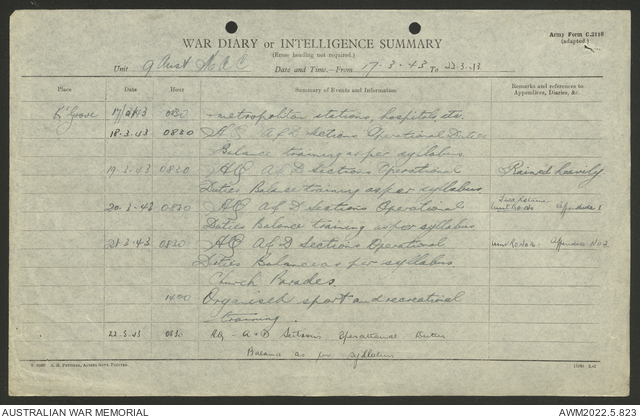 Army Form C.2118
(adapted.)
WAR DIARY or INTELLIGENCE SUMMARY
(Erase heading not required.)
Unit 9 Aust M.A.C Date and Time.—From 17-3-43 To 22-3-43
Place Date Hour Summary of Events and Information Remarks and references to Appendices, Diaries, &c.
K'Grove 17/3/43 0830 metropolitan stations, hospitals, etc.
18-3-43 0830 HQ A & D Sections Operational Duties
Balance training as per syllabus
19-3-43 0830 HQ A & D Sections Operational Rained heavily
Duties Balance training as per syllabus
20-3-43 0830 HQ A & D Sections Operational Unit RO No Appendice 1
Duties Balance training as per syllabus
21-3-43 0830 HQ A & D Sections Operational Unit RO No Appendice No 2
Duties Balance as per syllabus
Church Parades.
1400 Organised sport and recreational
training.
22-3-43 0830 HQ - A & D Sections Operational Duties
Balance as per syllabus
AUSTRALIAN WAR MEMORIAL
AWM2022.5.823